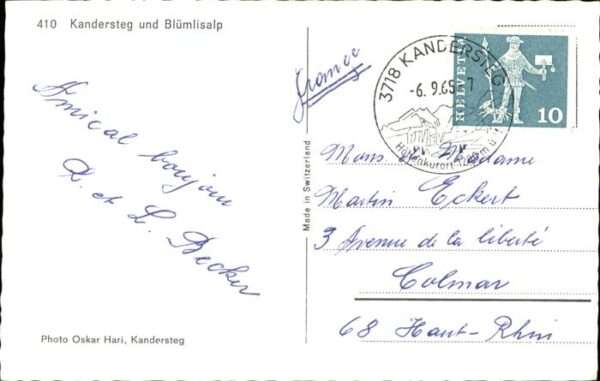 410 Kandersteg und Blümlisalp
Amical bonjour
R. et L. Becker
Photo Oskar Hari, Kandersteg
Made in Switzerland
France
3718 KANDERSTEG
-6.9.65-7
HELVETIA
10
Mons. et Madame
Martin Eckert
3 Avenue de la liberté
Colmar
68 Haut-Rhin